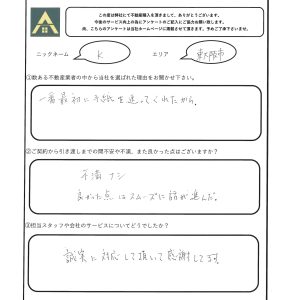 この度は弊社にて不動産購入を頂きまして、ありがとうございます。
今後のサービス向上の為にアンケートのご記入にご協力お願い致します。
尚、こちらのアンケートは当社ホームページに掲載させて頂きます。予めご了承下さいませ。
ニックネーム K エリア 東大阪市
①数ある不動産業者の中から当社を選ばれた理由をお聞かせ下さい。
一番最初に手紙を送ってくれたから。
②ご契約から引き渡しまでの間不安や不満、また良かった点はございますか？
不満ナシ
良かった点はスムーズに話が進んだ。
③担当スタッフや会社のサービスについてどうでしたか？
誠実に対応して頂いて感謝してます。